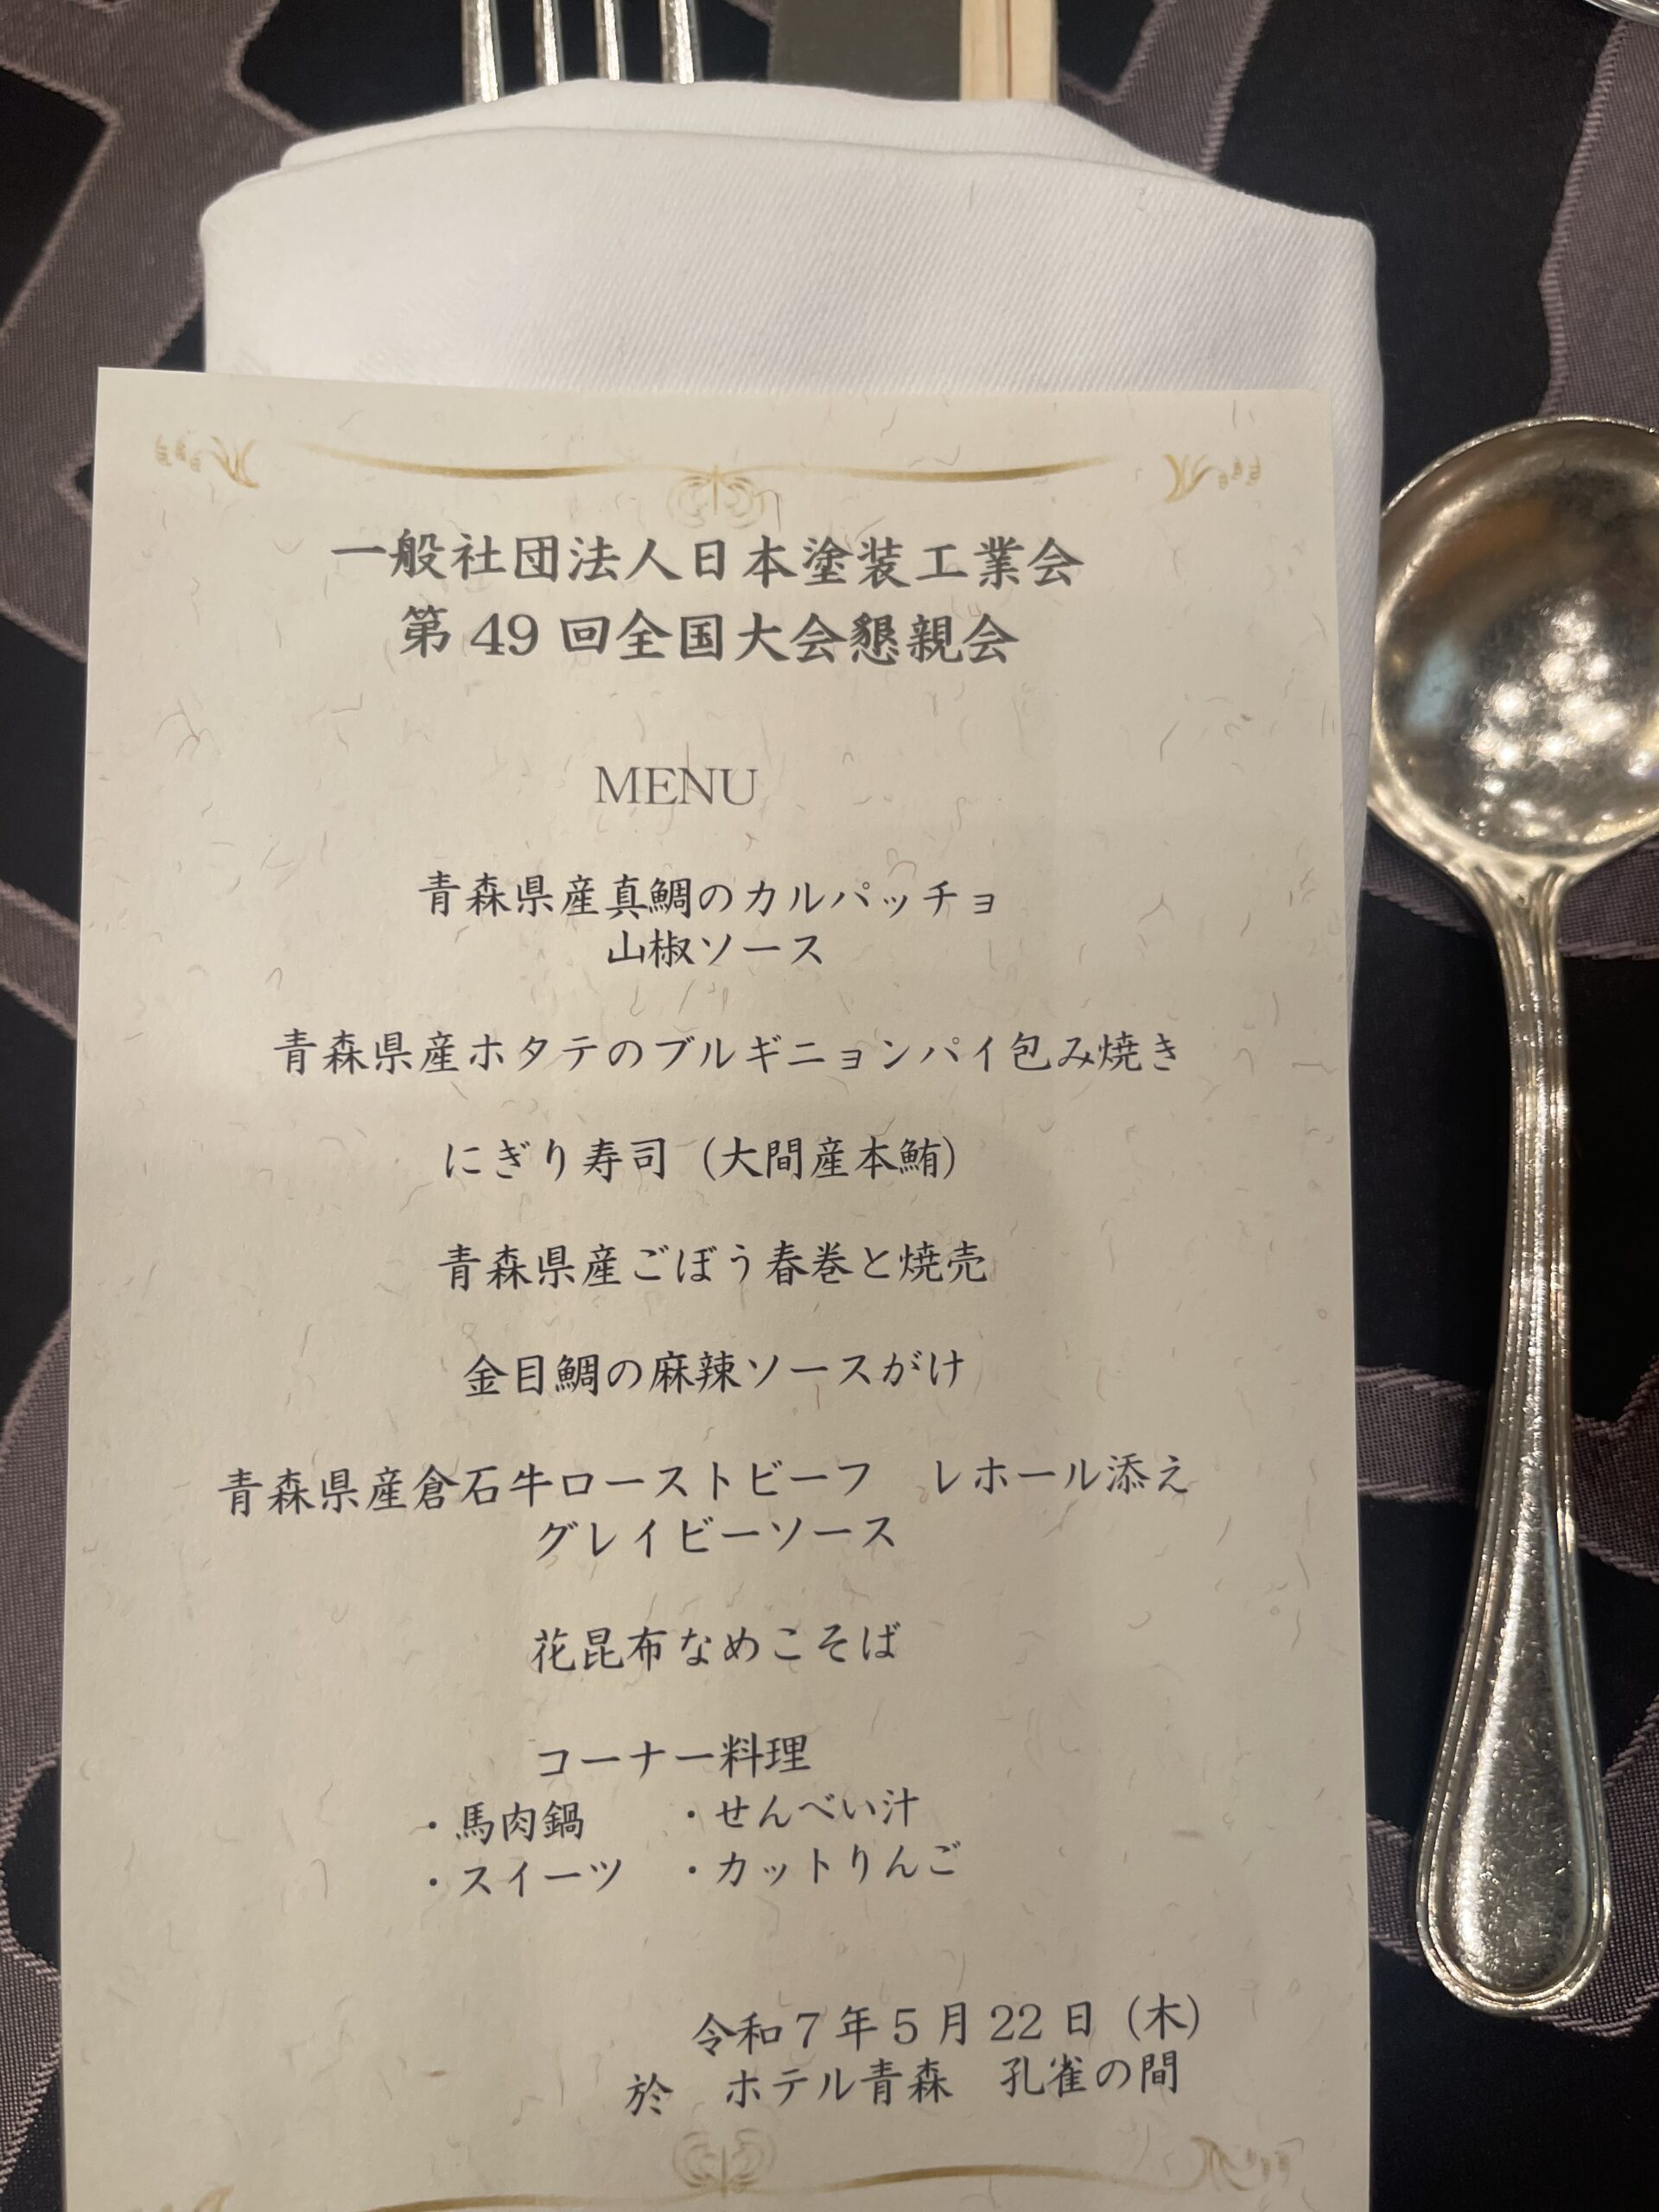 一般社団法人日本塗装工業会
第49回全国大会懇親会
MENU
青森県産真鯛のカルパッチョ
山椒ソース
青森県産ホタテのブルギニョンパイ包み焼き
にぎり寿司（大間産本鮪）
青森県産ごぼう春巻と焼売
金目鯛の麻辣ソースがけ
青森県産倉石牛ローストビーフ　レホール添え
グレイビーソース
花昆布なめこそば
コーナー料理
・馬肉鍋　・せんべい汁
・スイーツ　・カットりんご
令和7年5月22日（木）
於　ホテル青森　孔雀の間